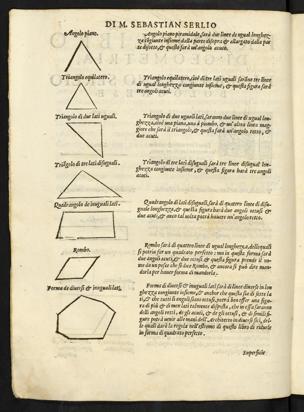 DI M. SEBASTIAN SERLIO
Angolo piano.
Angolo piano piramidale, sarà due linee de ugual lunghez-
za congiunte insieme dalla parte di sopra & allargate dalla par
te di sotto, & questa sarà un'angolo acuto.
Triangolo equilatero.
Triangolo equilatero, cioè di tre lati uguali sarà tre linee
di ugual lunghezza congiunte insieme, & questa figura sarà
tre angoli acuti.
Triangolo di due lati uguali.
Triangolo di due lati uguali, saranno due linee di ugual lun
ghezza, una piana, una à piombo, & un'altra linea mag
giore che sarà il triangolo, & questa sarà un'angolo retto, &
due acuti.
Triãgolo di tre lati disuguali.
Triangolo di tre lati disuguali sarà tre linee disugual
lunghezza congiunte insieme, & questa figura harà tre angoli
acuti.
Quadrangolo de inuguali lati.
Quadrangolo di lati disuguali, sarà di quattro linee di disu-
guale lunghezza, & questa harà due angoli ottusi &
due acuti, & anco tal volta potrà havere un'angolo retto.
Rombo.
Rombo sarà di quattro linee di ugual lunghezza, delle quali
si potria far un quadrato perfetto: ma in questa forma sarà
due angoli acuti, & due ottusi, & questa figura prende il no-
me da un pesce che si dice Rombo, & ancora si può dire man-
dorla per haver forma di mandorla.
Forma de diuersi & inuguali lati.
Forma di diuersi & inuguali lati sarà di linee diuerse in lun-
ghezza congiunte insieme, & anchor che questa sia di sette la
ti, & che tutti li angoli siano ottusi, potrà ben esser una figu-
ra di più & di men lati talmente disposta, che in essa saranno
delli angoli retti, & de gli acuti, & de gli ottusi, & di simil fi-
gure potrà venir alle mani dell'Architetto in diuersi siti, del-
le quali darà la regola nell'estremo di questo libro di ridurle
in forma di quadrato perfetto.
Superficie